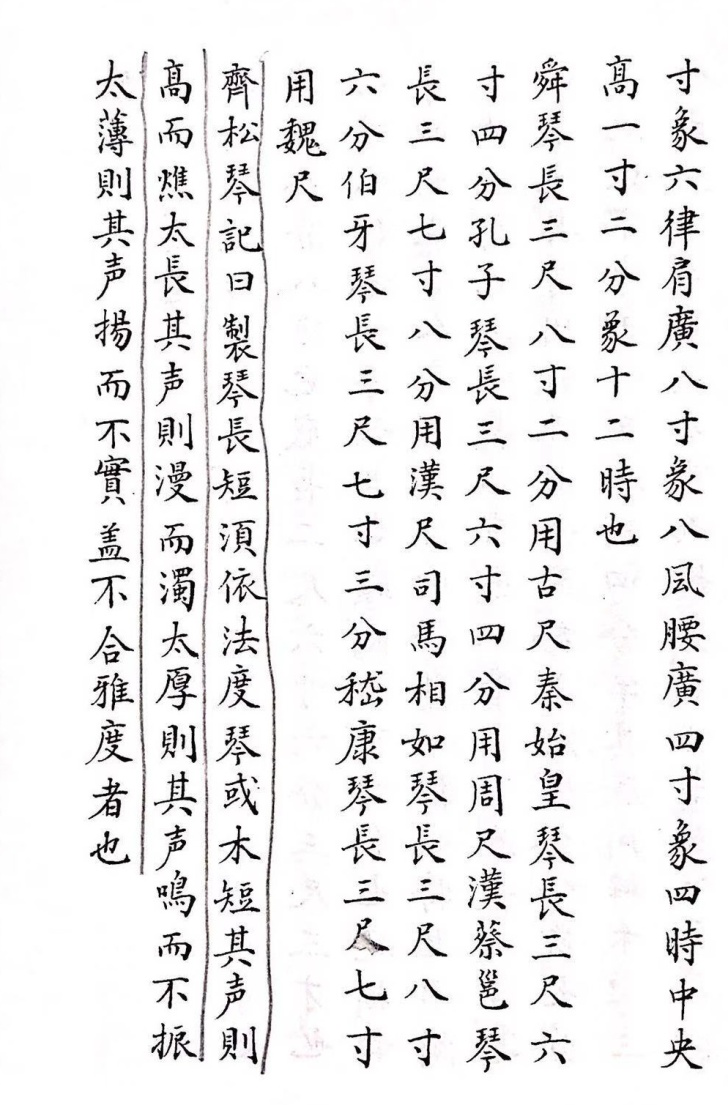 寸象六律肩廣八寸象八風腰廣四寸象四時中央
高一寸二分象十二時也
舜琴長三尺八寸二分用古尺秦始皇琴長三尺六
寸四分孔子琴長三尺六寸四分用周尺漢蔡邕琴
長三尺七寸八分用漢尺司馬相如琴長三尺八寸
六分伯牙琴長三尺七寸三分嵇康琴長三尺七寸
用魏尺
齊松琴記曰製琴長短須依法度琴或木短其声則
高而燋太長其声則漫而濁太厚則其声鳴而不振
太薄則其声揚而不實盖不合雅度者也